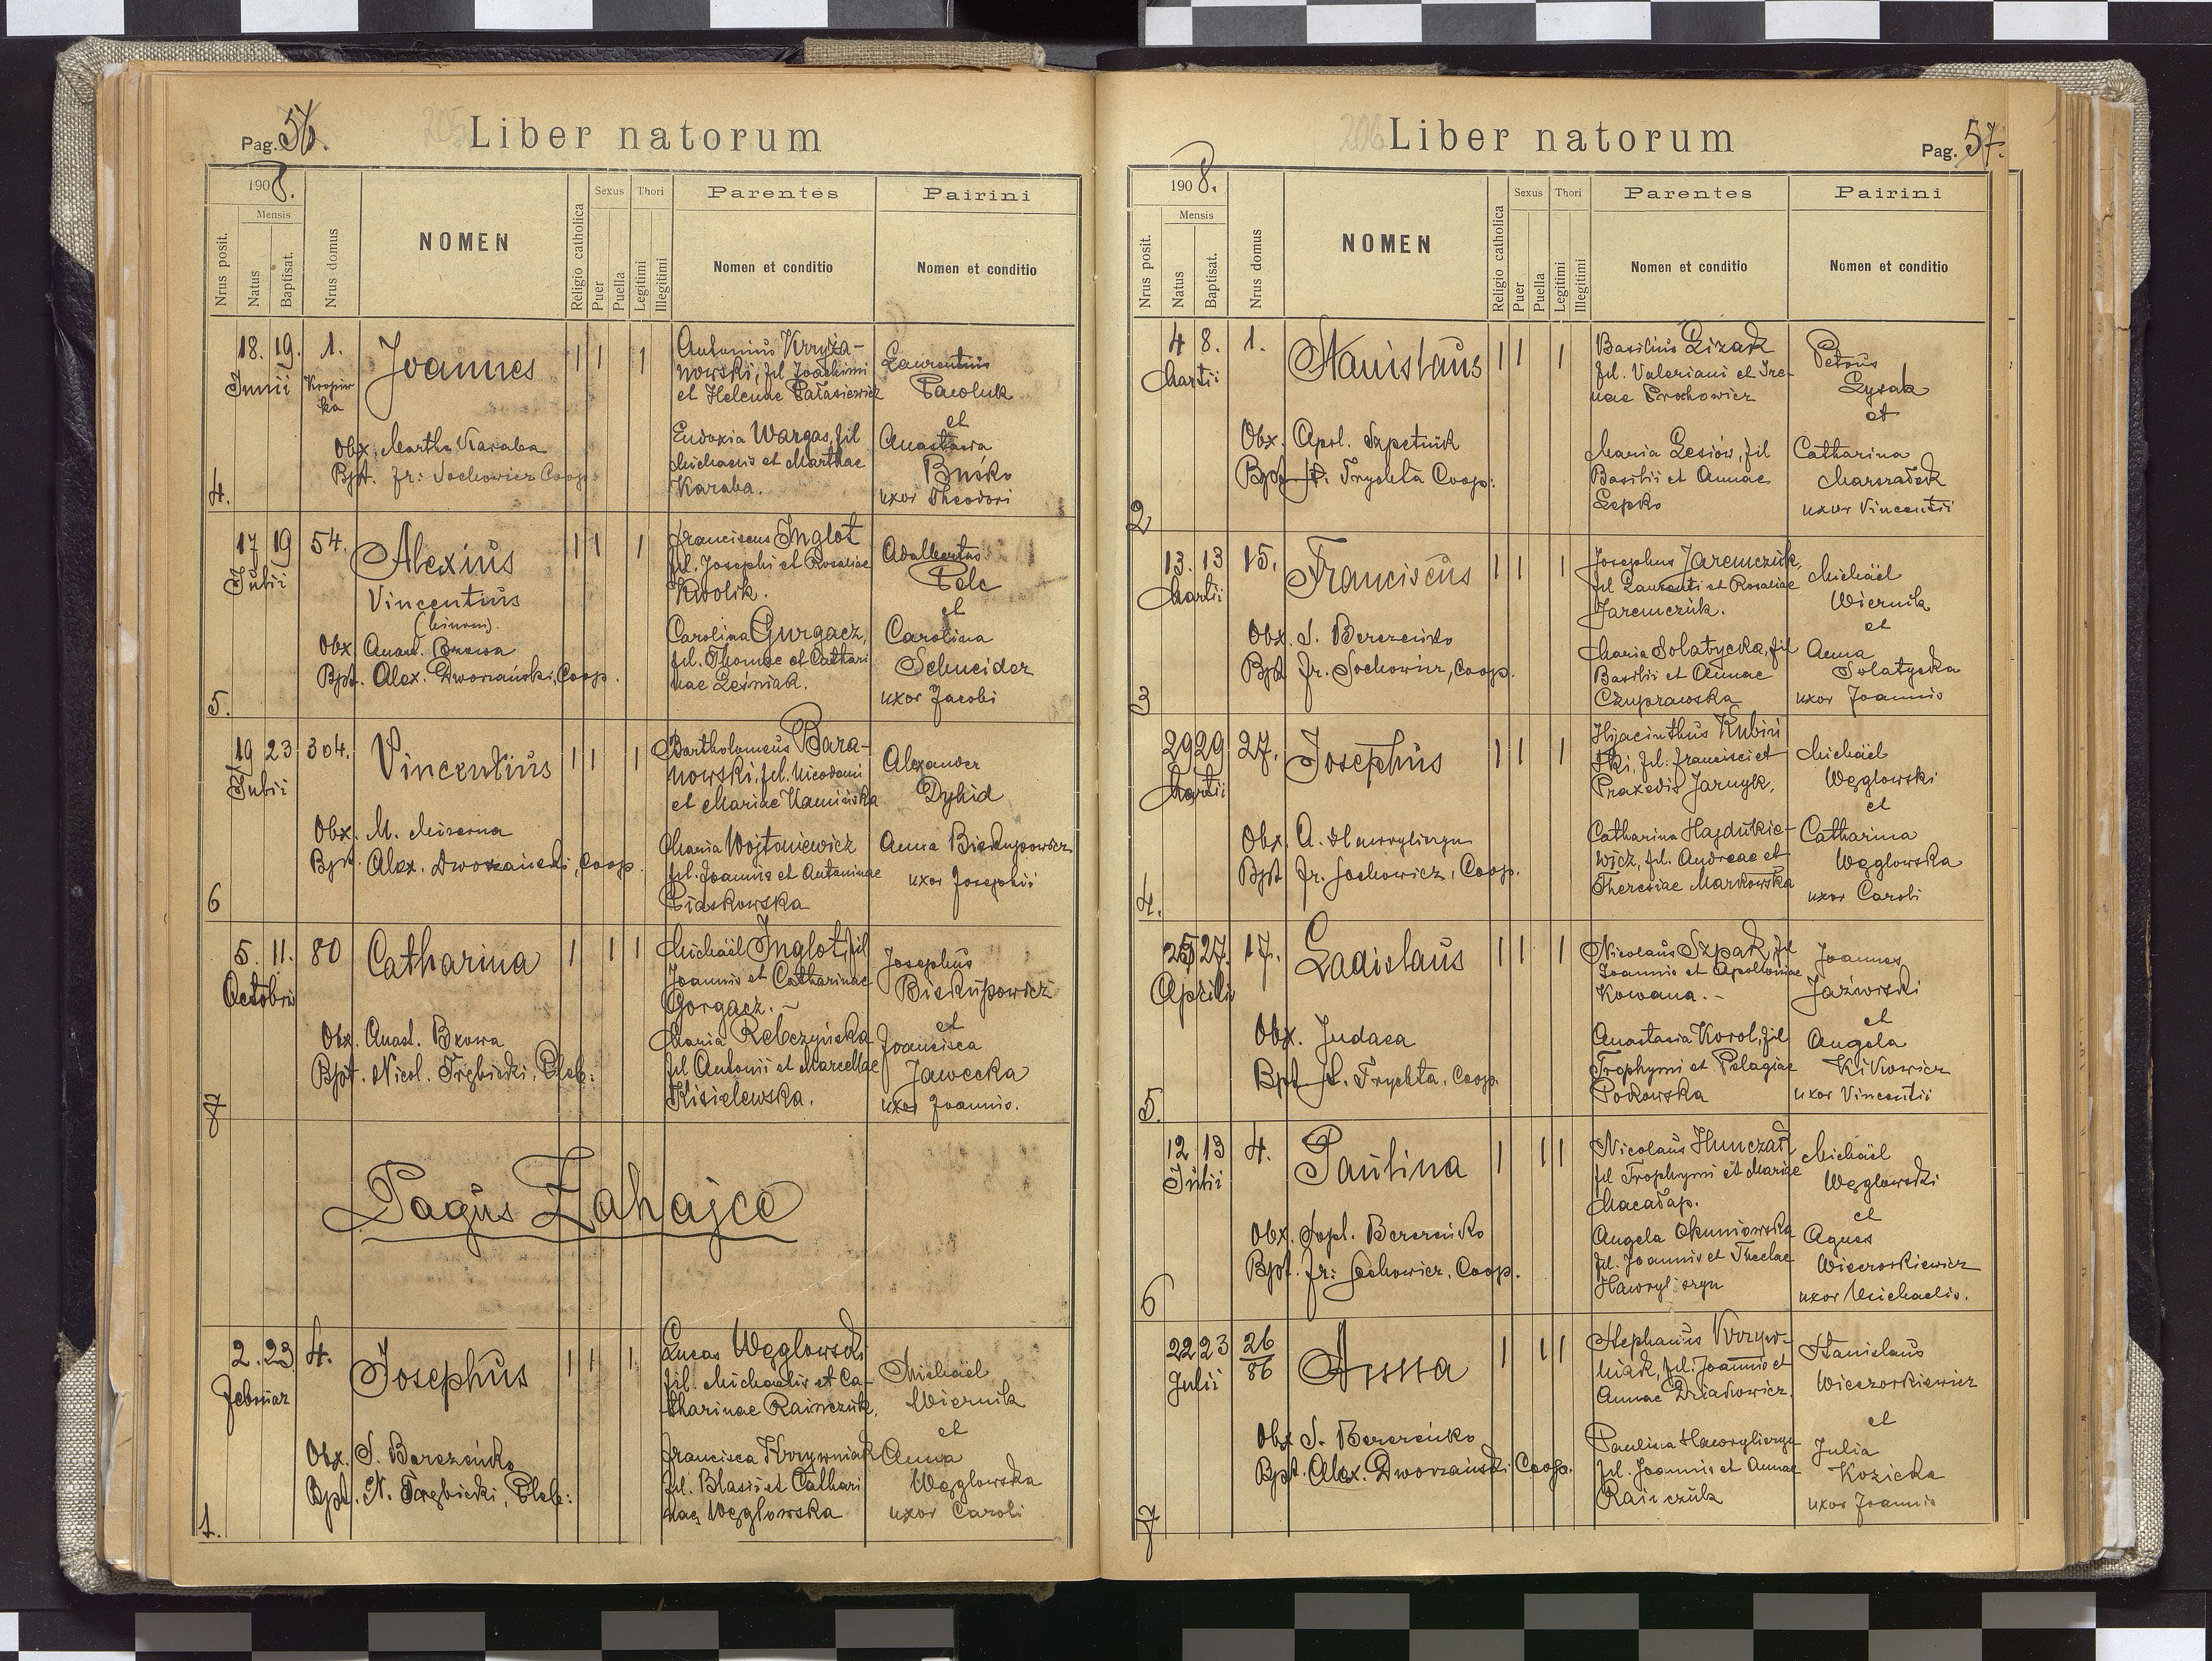 Pag. 56.
205
Liber natorum
1908.
Mensis
Nrus posit.
Natus
Baptisat.
Nrus domus
NOMEN
Religio catholica
Sexus
Puer
Puella
Thori
Legitimi
Illegitimi
Parentes
Nomen et conditio
Pairini
Nomen et conditio
4.
18. 19. 1.
Junii
Joannes
1 1 1
Obx. Martha Karaba
Bpt. fr: Sochowicz Coop.
Antonius Krryża-
nowski, fil Joachimi
et Helenae Pałasiewicz
Eudoxia Wargas, fil
Michaelis et Marthae
Karaba.
Laurentius
Pawluk
et
Anastasia
Buśko
uxor Theodori
5.
17 19 54.
Julii
Alexius
Vincentius
(binom).
1 1 1
Obx. Anast. Brxowa
Bpt. Alex. Dworzański, Coop.
Franciscus Inglot
fil. Josephi et Rosaliae
Kwolik.
Carolina Gurgacz,
fil. Thomae et Cathari
nae Leśniak.
Adalbertus
Pelc
et
Carolina
Schneider
uxor Jacobi
6
19 23 304.
Julii
Vincentius
1 1 1
Obx. M. Mizerna
Bpt. Alex. Dworzański, Coop.
Bartholomeus Bara-
nowski, fil. Nicodemi
et Mariae Kamińska
Maria Wojtoniewicz
fil. Joannis et Antoninae
Piaskowska
Alexander
Dyhid
Anna Biskupowicz
uxor Josephi
7
5. 11. 80
Octobris
Catharina
1 1 1
Obx. Anast. Bxowa
Bpt. Nicol. Trębicki, Pleb:
Michaël Inglot, fil
Joannis et Catharinae
Gorgacz. -
Maria Rebczyńska
fil Antonii et Marcellae
Kisielewska.
Josephus
Biskupowicz
et
Francisca
Jawecka
uxor Joannis.
Pagus Zahajce
1.
2. 23 4.
Februar
Josephus
1 1 1
Obx. S. Berezeńko
Bpt. N. Trębicki, Pleb:
Lucas Węglowski
fil. Michaelis et Ca-
tharinae Rainczuk.
Francisca Krrywniak
fil. Blasii et Cathari
nae Węglowska
Michael
Wiernik
et
Anna
Węglowska
uxor Caroli
206
Liber natorum
Pag. 57.
1908.
Mensis
Nrus posit.
Natus
Baptisat.
Nrus domus
NOMEN
Religio catholica
Sexus
Puer
Puella
Thori
Legitimi
Illegitimi
Parentes
Nomen et conditio
Pairini
Nomen et conditio
2
4 8. 1.
Martii
Stanislaus
1 1 1
Obx. Apol. Szpetnik
Bpt. Trychta Coop:
Basilius Lizak
fil. Valeriani et Ire-
nae Prochowicz
Maria Lesiów, fil
Basilii et Annae
Lepko
Petrus
Lysak
et
Catharina
Marszałek
uxor Vincentii
3
13. 13 15.
Martii
Franciscus
1 1 1
Obx. S. Berezeńko
Bpt fr. Sochowicz, Coop.
Josephus Jaremczuk,
fil Laurenti et Rosaliae
Jaremczuk.
Maria Solatycka, fil
Basilii et Annae
Czuprawska
Michäel
Wiernik
et
Anna
Solatycka
uxor Joannis
4.
29 29 27.
Martii
Josephus
1 1 1
Obx. A. Hawryliczyn
Bpt fr. Sochowicz, Coop.
Hyacinthus Rubiń
ski, fil. Francisci et
Praxedis Jarnyk.
Catharina Hajdukie-
wicz, fil. Andreae et
Theresiae Markowska
Michäel
Węglowski
et
Catharina
Węglowska
uxor Caroli
5.
25 27. 17.
Aprilis
Ladislaus
1 1 1
Obx. Judaea
Bpt Trychta, Coop.
Nicolaus Szpak, fil
Joannis et Apolloniae
Kowana. -
Anastasia Korol, fil
Trophymi et Pelagiae
Pokowska
Joannes
Jaźwiski
et
Angela
Kikowicz
uxor Vincentii
6
12 13 4.
Julii
Paulina
1 1 1
Obx. Sopl. Berezeńko
Bpt. fr: Sochowicz, Coop.
Nicolaus Hunczak
fil Trophymi et Mariae
Macałap.
Angela Okuniowska
fil. Joannis et Theclae
Hawryliczyn
Michäel
Węglowski
et
Agnes
Wieczorkiewicz
uxor Michaelis.
7
22 23 26
86
Julii
Anna
1 1 1
Obx S. Berezeńko
Bpt. Alex. Dworzański Coop.
Stephanus Krryw-
niak, fil. Joannis et
Annae Dziadowicz.
Paulina Hawryliczyn
fil. Joannis et Annae
Rainczuk
Stanislaus
Wieczorkiewicz
et
Julia
Kozicka
uxor Joannis